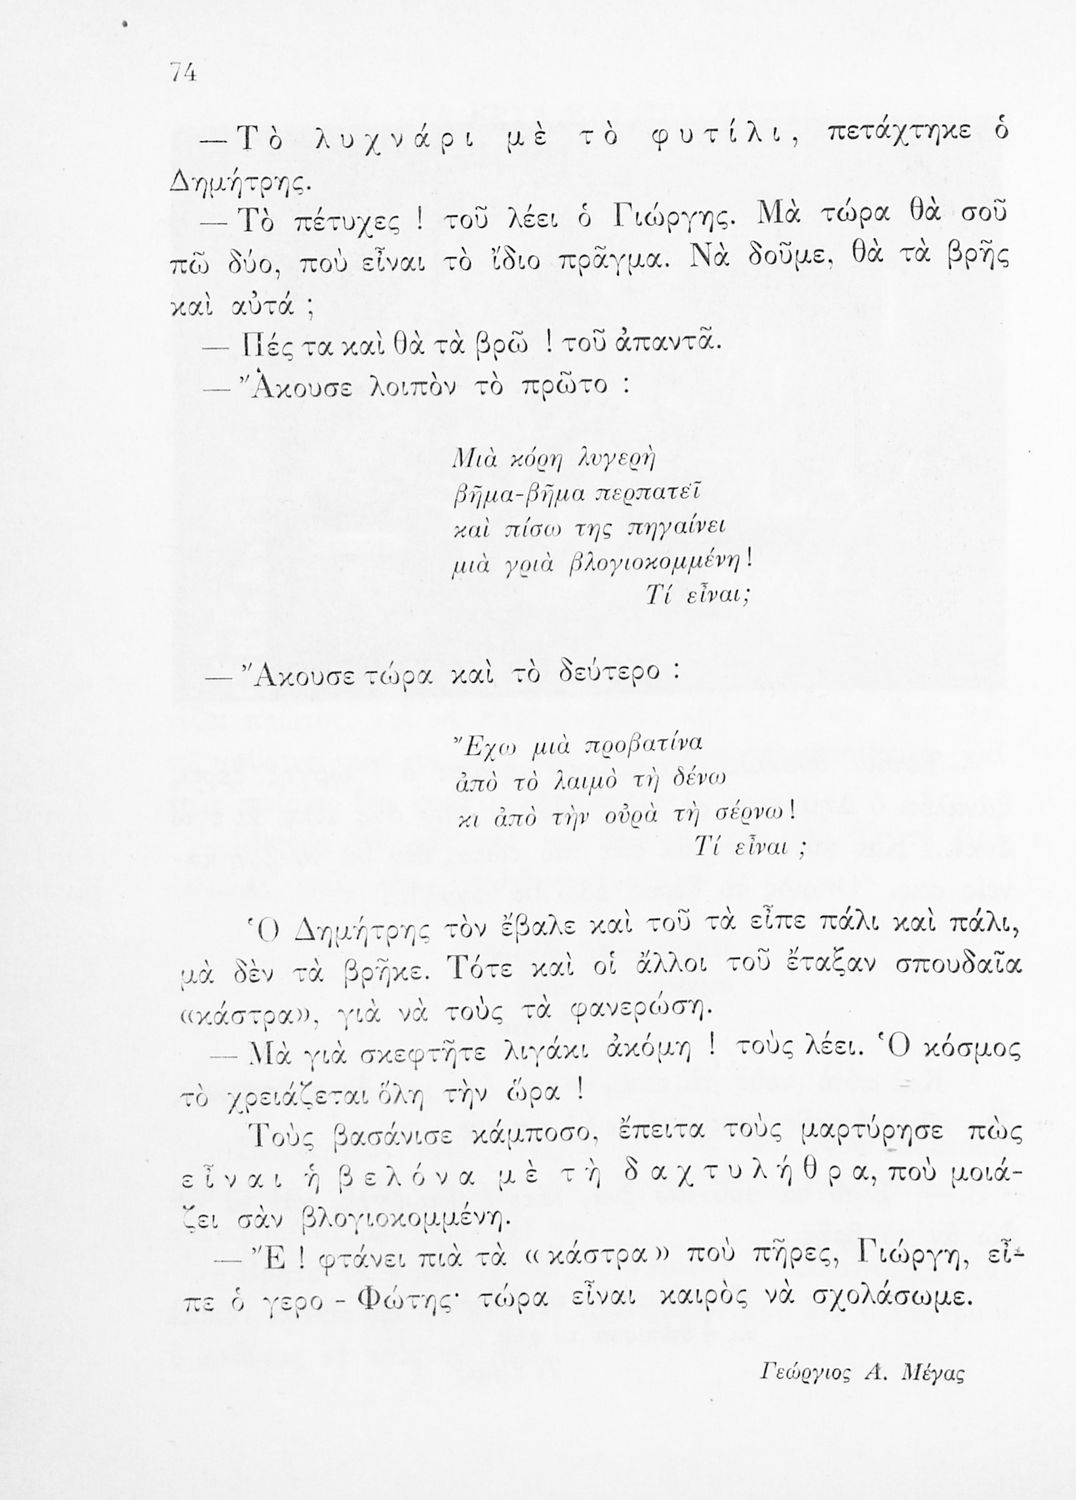 74
— Τὸ λυχνάρι μὲ τὸ φυτίλι, πετάχτηκε ὁ
Δημήτρης.
— Τὸ πέτυχες ! τοῦ λέει ὁ Γιώργης. Μὰ τώρα θὰ σοῦ
πῶ δύο, ποὺ εἶναι τὸ ἴδιο πρᾶγμα. Νὰ δοῦμε, θὰ τὰ βρῆς
καὶ αὐτά ;
— Πές τα καὶ θὰ τὰ βρῶ ! τοῦ ἀπαντᾶ.
— Ἄκουσε λοιπὸν τὸ πρῶτο :
Μιὰ κόρη λυγερὴ
βῆμα-βῆμα περπατεῖ
καὶ πίσω της πηγαίνει
μιὰ γριὰ βλογιοκομμένη!
Τί εἶναι;
— Ἄκουσε τώρα καὶ τὸ δεύτερο :
Ἔχω μιὰ προβατίνα
ἀπὸ τὸ λαιμὸ τὴ δένω
κι ἀπὸ τὴν οὐρὰ τὴ σέρνω!
Τί εἶναι ;
Ὁ Δημήτρης τὸν ἔβαλε καὶ τοῦ τὰ εἶπε πάλι καὶ πάλι,
μὰ δὲν τὰ βρῆκε. Τότε καὶ οἱ ἄλλοι τοῦ ἔταξαν σπουδαῖα
«κάστρα», γιὰ νὰ τοὺς τὰ φανερώση.
— Μὰ γιὰ σκεφτῆτε λιγάκι ἀκόμη ! τοὺς λέει. Ὁ κόσμος
τὸ χρειάζεται ὅλη τὴν ὥρα !
Τοὺς βασάνισε κάμποσο, ἔπειτα τοὺς μαρτύρησε πὼς
εἶναι ἡ βελόνα μὲ τὴ δαχτυλήθρα, ποὺ μοιά-
ζει σὰν βλογιοκομμένη.
— Ἔ ! φτάνει πιὰ τὰ «κάστρα» ποὺ πῆρες, Γιώργη, εἶ-
πε ὁ γερο - Φώτης· τώρα εἶναι καιρὸς νὰ σχολάσωμε.
Γεώργιος Α. Μέγας